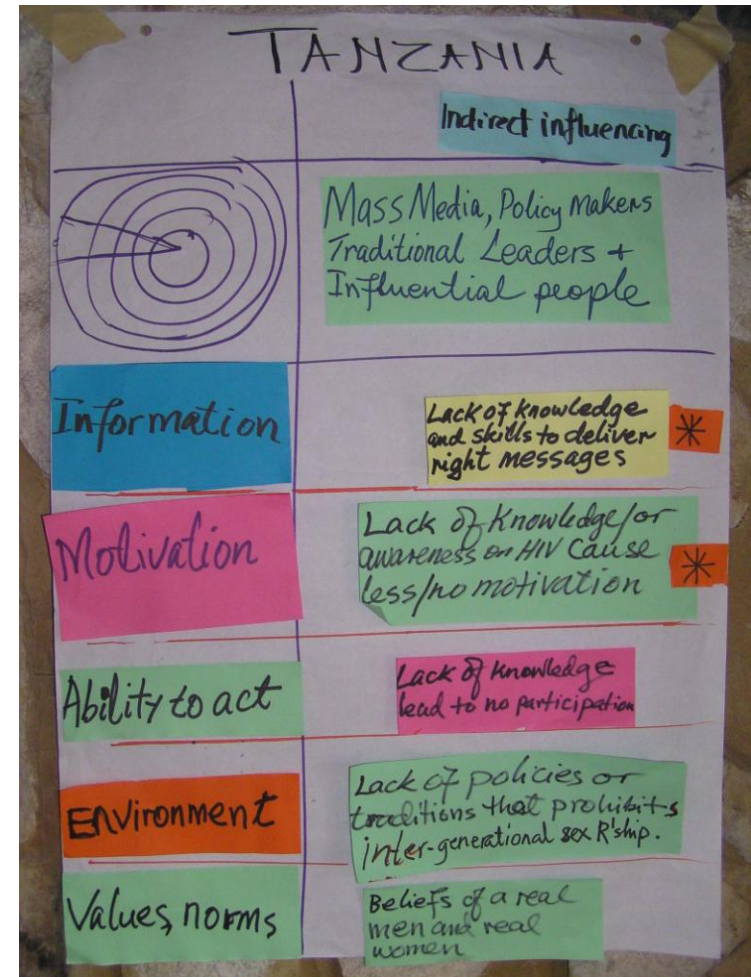 TANZANIA
Indirect influencing
Mass Media, Policy Makers
Traditional Leaders +
Influential people
Information
Lack of knowledge
and skills to deliver
right messages
Motivation
Lack of Knowledge/or
awareness on HIV Cause
less/no motivation
Ability to act
Lack of Knowledge
lead to no participation
Environment
Lack of policies or
traditions that prohibits
inter-generational sex R'ship.
Values, norms
Beliefs of a real
men and real
women